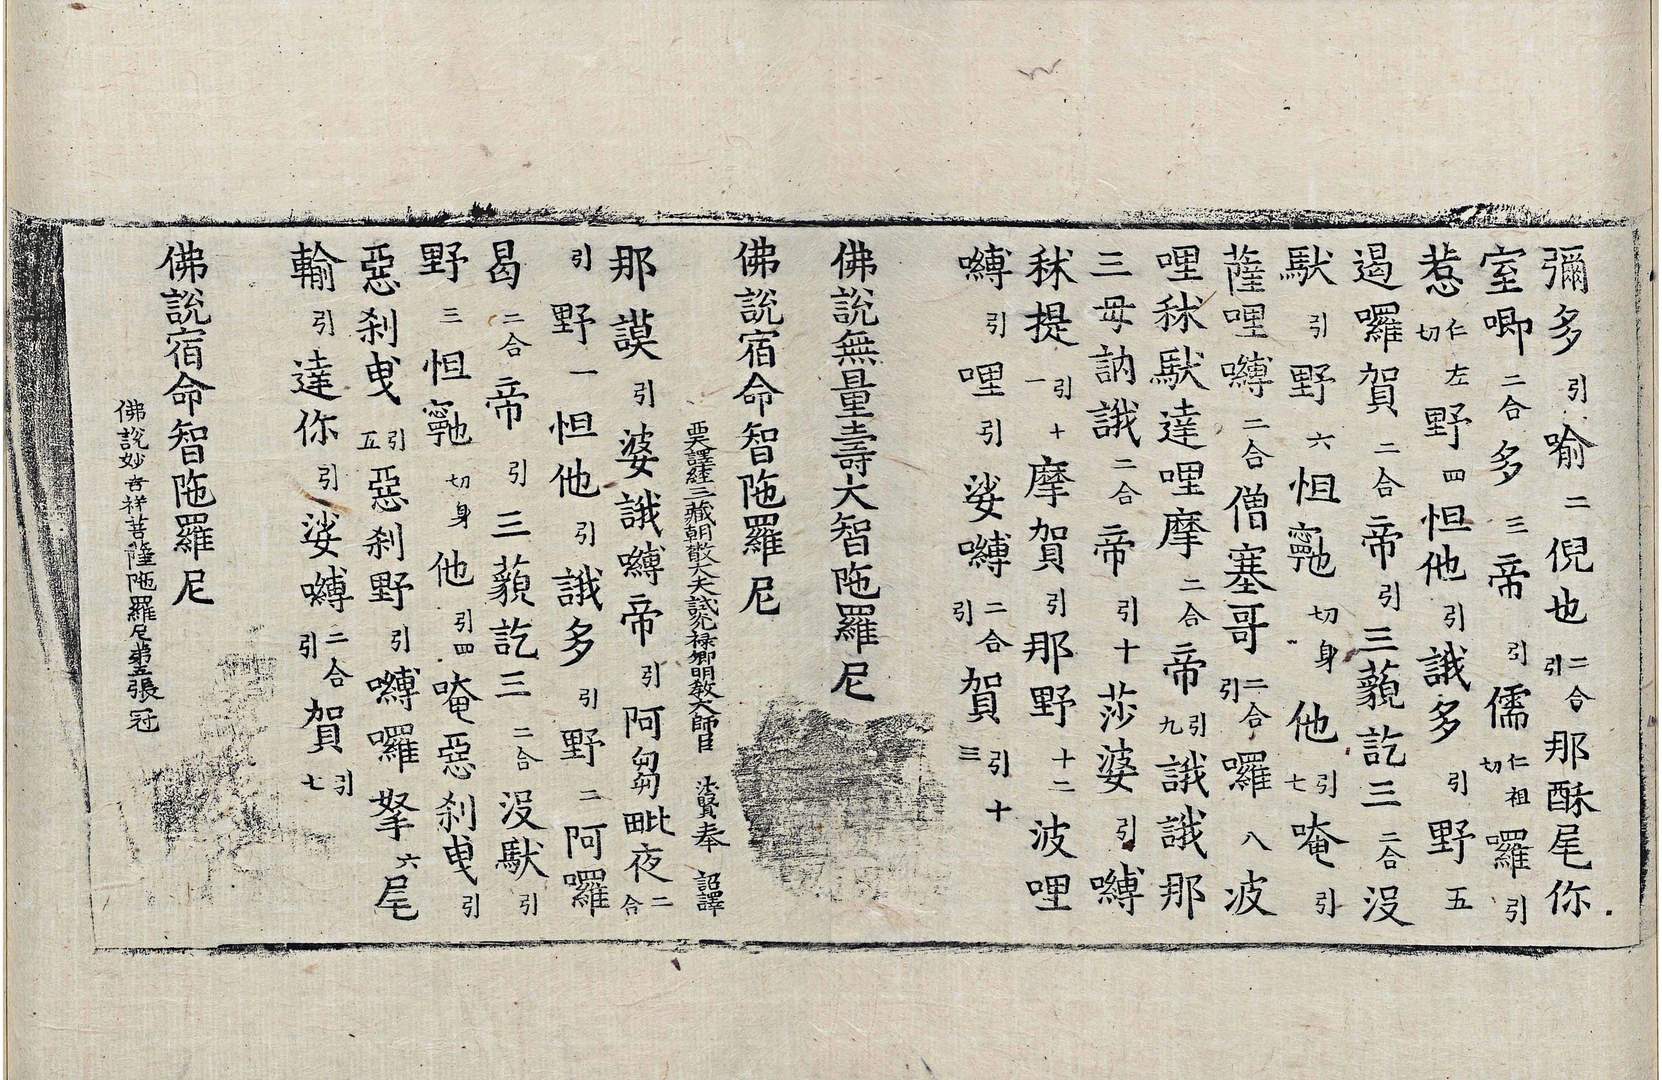 彌多引喻二倪也二合引那酥尾你
室唧二合多三帝引儒仁祖切囉引
惹仁左切野四怛他引誐多引野五
遏囉賀二合帝引三藐訖三二合沒
馱引野六怛寧也切身他引七唵引
薩哩嚩二合僧塞哥二合引囉八波
哩秫馱達哩摩二合帝引九誐誐那
三母訥誐二合帝引十莎婆引嚩
秫提引十一摩賀引那野十二波哩
嚩引哩引娑嚩二合引賀引十三
佛說無量壽大智陁羅尼
佛說宿命智陁羅尼
西天譯經三藏朝散大夫試光祿卿明教大師臣法賢奉 詔譯
那謨引婆誐嚩帝引阿芻毗夜二合
引野一怛他引誐多引野二阿囉
曷二合帝引三藐訖三二合沒馱引
野三怛寧也切身他引四唵惡刹曳引
惡刹曳引五惡刹野引嚩囉拏六尾
輸引達你引娑嚩二合引賀引七
佛說宿命智陁羅尼
佛說妙吉祥菩薩陁羅尼第五張 冠